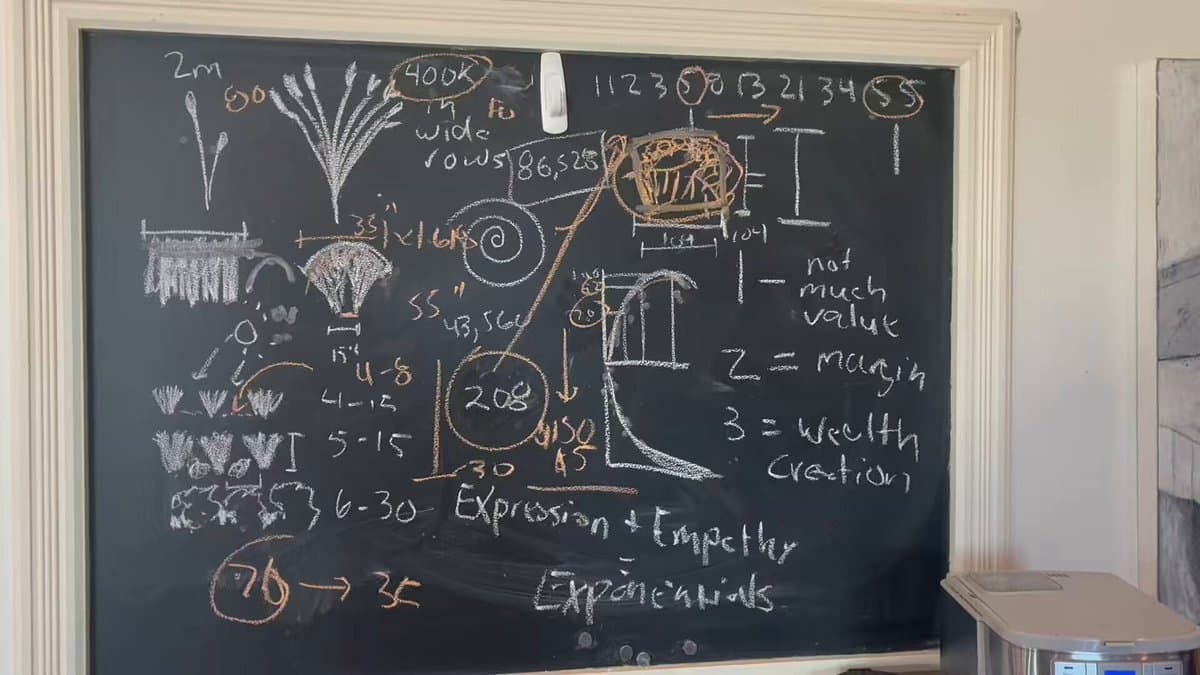 2m
80
400K
in
wide
rows
1 1 2 3 5 8 13 21 34 55
86,528
33"
55"
43,560
15"
4-8
4-12
5-15
6-30
208
$150
30
45
104
104
1 - not
much
value
2 = margin
3 = wealth
creation
Expression + Empathy
=
Exponentials
76 → 35